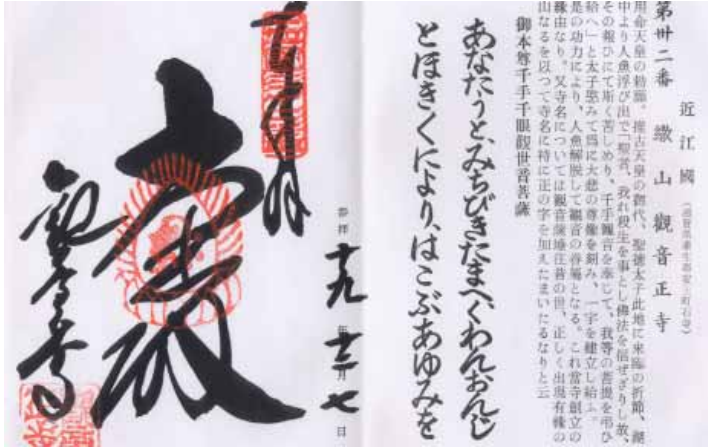 近江國（滋賀県蒲生郡安土町石寺）
第卅二番 繖山 觀音正寺
用命天皇の勅願。推古天皇の御代、聖徳太子此地に来臨の折節、湖
中より人魚浮び出で「聖者、我れ殺生を事とし佛法を信ぜざりし故、
その報ひにて斯く苦しめり、千手觀音を奉じて、我等の菩提を弔ひ
給へ」と太子愍みて爲に大悲の尊像を刻み、一宇を建立し給ふ。
是の功力により、人魚解脱して観音の眷属となる。これ當寺創立の
縁由なり。又寺名については観音薩埵往昔の世、正しく出現有縁の
山なるを以つて寺名に特に正の字を加えたまいたるなりと云
御本尊千手千眼觀世音菩薩
あなたうと、みちびきたまへ、くわんおんじ
とほきくにより、はこぶあゆみを
奉拝 十九年十二月七日
大悲殿
観音正寺